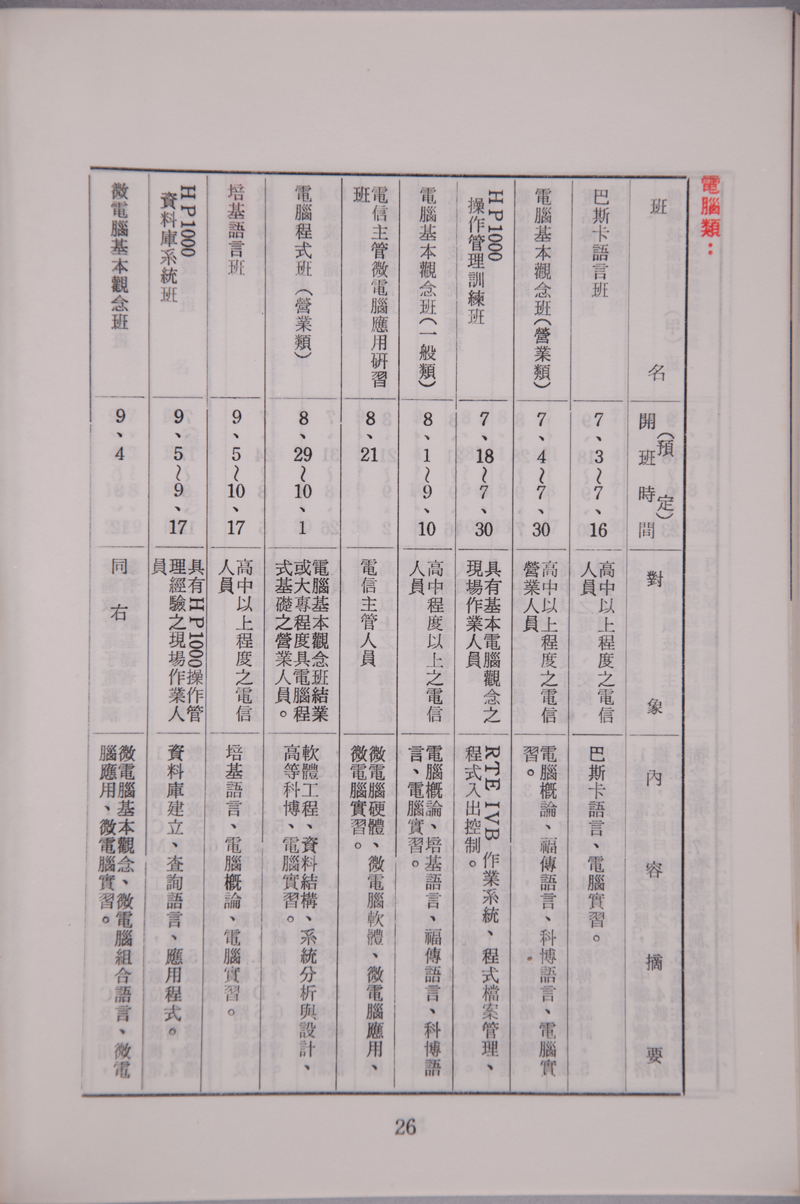 電腦類：
班名
開班時間
（預定）
對象
內容摘要
巴斯卡語言班
7、3～7、16
高中以上程度之電信
人員
巴斯卡語言、電腦實習。
電腦基本觀念班（營業類）
7、4～7、30
高中以上程度之電信
營業人員
電腦概論、福傳語言、科博語言、電腦實
習。
HP1000
操作管理訓練班
7、18～7、30
具有基本電腦觀念之
現場作業人員
RTE IVB 作業系統、程式檔案管理、
程式入出控制。
電腦基本觀念班（一般類）
8、1～9、10
高中程度以上之電信
人員
電腦概論、培基語言、福傳語言、科博語
言、電腦實習。
電信主管微電腦應用研習
班
8、21
電信主管人員
微電腦硬體、微電腦軟體、微電腦應用、
微電腦實習。
電腦程式班（營業類）
8、29～10、1
電腦基本觀念班結業
或大專程度具電腦程
式基礎之營業人員。
軟體工程、資料結構、系統分析與設計、
高等科博、電腦實習。
培基語言班
9、5～10、17
高中以上程度之電信
人員
培基語言、電腦概論、電腦實習。
HP1000
資料庫系統班
9、5～9、17
具有HP1000操作管
理經驗之現場作業人
員
資料庫建立、查詢語言、應用程式。
微電腦基本觀念班
9、4
同右
微電腦基本觀念、微電腦組合語言、微電
腦應用、微電腦實習。
26